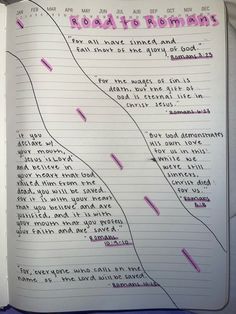 JAN FEB MAR APR MAY JUN JUL AUG SEP OCT NOV DEC
Road to Romans
"For all have sinned and
fall short of the glory of God."
- Romans 3:23
"For the wages of sin is
death, but the gift of
God is eternal life in
Christ Jesus."
- Romans 6:23
"If you
declare w/
your mouth,
"Jesus is Lord"
and believe in
your heart that God
raised him from the
dead, you will be saved.
For it is with your heart
that you believe and are
justified, and it is with
your mouth that you profess
your faith and are saved."
- Romans
10:9-10
But God demonstrates
his own love
for us in this:
While we
were still
sinners,
Christ died
for us."
- Romans
5:8
"For, everyone who calls on the
name of the Lord will be saved."
- Romans 10:13